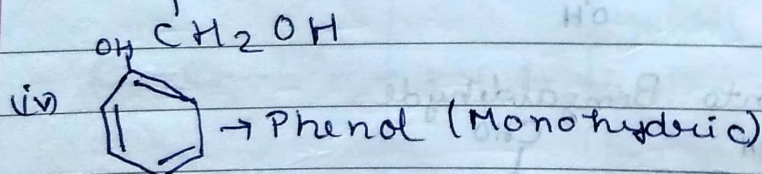 CH2OH
OH
(iv) → Phenol (Monohydric)